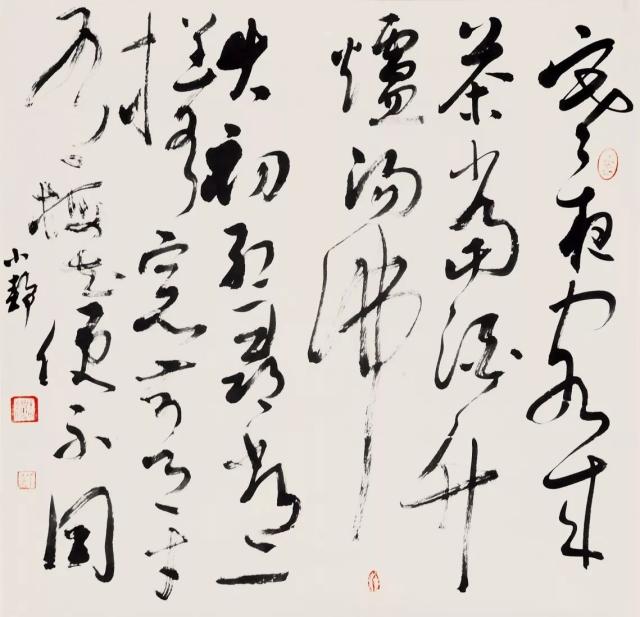 寒夜客来
茶當酒竹
爐湯沸
火初紅尋常一
樣窗前月才
有梅花便不同
小静